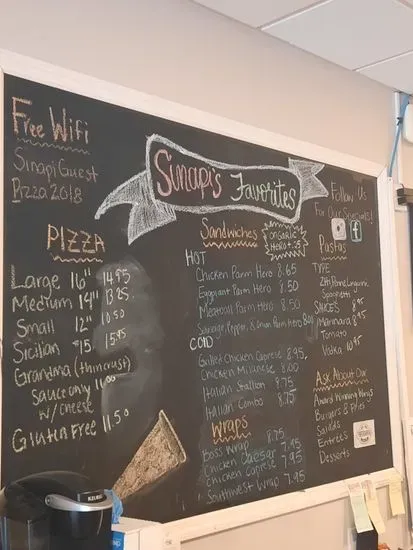 Free Wifi
SinapiGuest
Pizza2018
Sinapi's Favorites
Follow Us
For Our Specials!
PIZZA
Large 16" 14.95
Medium 14" 13.25
Small 12" 10.50
Sicilian 15.95
Grandma (thin crust)
Sauce only 11.00
w/ cheese
Gluten Free 11.50
Sandwiches
on Garlic
Hero +.75
HOT
Chicken Parm Hero 8.65
Eggplant Parm Hero 8.50
Meatball Parm Hero 8.50
Sausage, Pepper, & Onion Parm Hero
COLD
Grilled Chicken Caprese 8.95
Chicken Milanese 8.00
Italian Stallion 8.75
Italian Combo 8.75
Wraps
Boss Wrap 8.75
Chicken Caesar 7.95
Chicken Caprese 7.95
Southwest Wrap 7.95
Pastas
TYPE
Ziti, Penne, Linguini,
Spaghetti
SAUCES
Marinara 8.95
Tomato
Vodka 10.95
Ask About Our
Award Winning Wings
Burgers & Fries
Salads
Entrees
Desserts
KEURIG